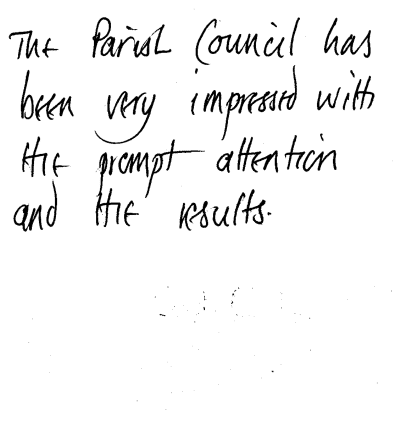 The Parish Council has
been very impressed with
the prompt attention
and the results.